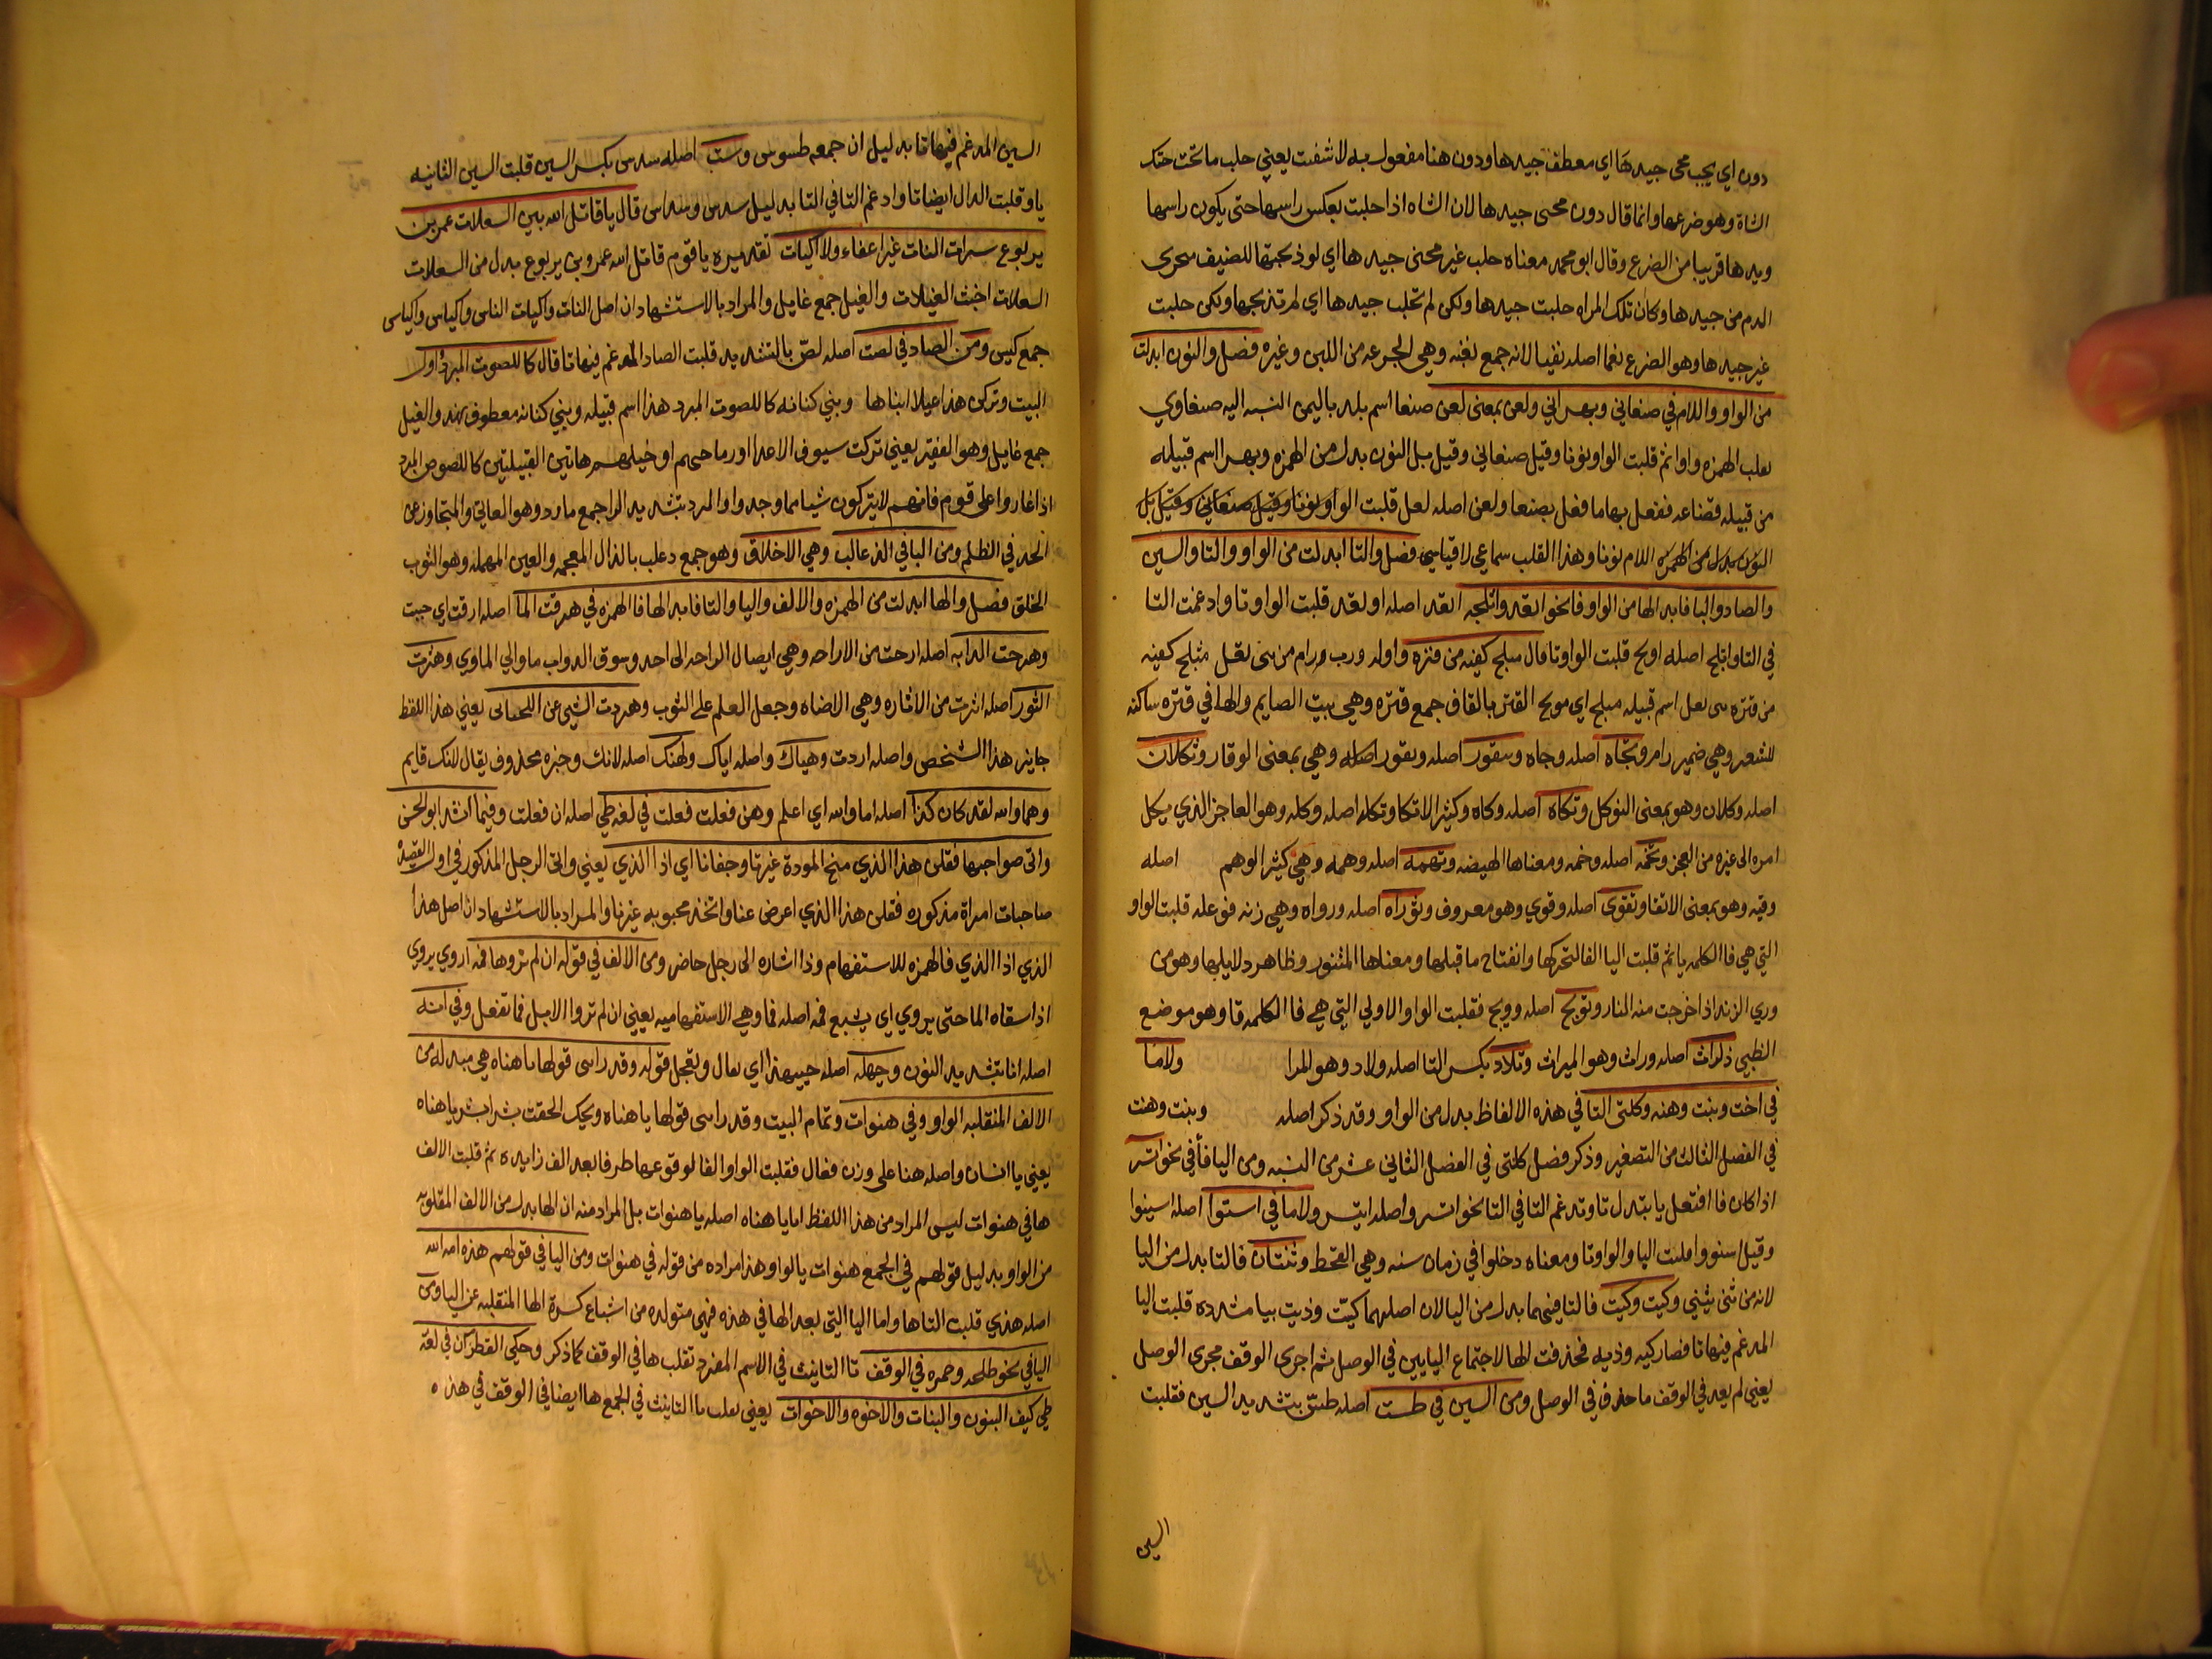 دون اي يجب محى جيدها اي معطف جيدها ودون هنا مفعول به لا شفت يعني حلب ما تحت حنك
الشاة وهو ضرعها وانما قال دون محنى جيدها لان الشاه اذا حلبت يعكس راسها حتى يكون راسها
ويدها قريبا من الضرع وقال ابو محمد معناه حلب غير محنى جيدها اي لوذبحتها للضيف
الدم من جيدها وكان تلك المراه حلبت جيدها ولكن لم تحلب جيدها اي لم تذبحها ولكن حلبت
غير جيدها وهو الضرع نغما اصله نغبا لانه جمع نغبه وهي الجرعه من اللبن وغيره فصل والنون ابدلت
من الواو واللام في صنعاني وبهراني ولعن بمعنى لعن صنعا اسم بلد باليمن النسبه اليه صنعاوي
بقلب الهمزه واوا ثم قلبت الواو نونا وقيل صنعاني وقيل بل النون بدل من الهمزه وبهرا اسم قبيله
من قبيله قضاعه ففعل بها ما فعل بصنعا ولعن اصله لعل قلبت الواو نونا وقيل صنعاني وقيل بل
النون بدل من الهمزه اللام نونا وهذا القلب سماعي لا قياسي فصل والتا ابدلت من الواو والتا والسين
والصاد والبا فابدالها من الواو فا نحو اتعد واتلجه اتعد اصله اوتعد قلبت الواو تا وادغمت التا
في التا واتلج اصله اولج قلبت الواو تا قال متلج كفيه من قتره واوله ورب رام من بنى ثعل متلج كفيه
من قتره بنى ثعل اسم قبيله متلج اي مولج القتر بالقاف جمع قتره وهي بيت الصايم والها في قتره ساكنه
للشعر وهي ضمير رام وتجاه اصله وجاه وتيقور اصله ويقور اصله وهي بمعنى الوقار وتكلان
اصله وكلان وهو بمعنى التوكل وتكاه اصله وكاه وكثير الاتكا وتكله اصله وكله وهو العاجز الذي يكل
امره الى غيره من العجز وتخمه اصله وخمه ومعناها الهيضه وتهمه اصله وهمه وهي كثير الوهم اصله
وقيه وهو بمعنى الاتقا وتقوى اصله وقوي وهو معروف وتوراه اصله ورواه وهي زنه فوعله قلبت الواو
التي هي فا الكلمه يا ثم قلبت اليا الفا لتحركها وانفتاح ما قبلها ومعناها التنور وظاهر دلايلها وهو من
وري الزند اذا خرجت منه النار وتولج اصله وولج فقلبت الواو الاولي التي هي فا الكلمه تا وهو موضع
الظبي تراث اصله وراث وهو الميراث وتلاد بكسر التا اصله ولاد وهو المرا ولاما
في اخت وبنت وهنه وكلتى التا في هذه الالفاظ بدل من الواو وقد ذكر اصله وبنت وهنت
في الفصل الثالث من التصغير وذكر فصل كلتى في الفصل الثاني عشر من النسبه ومن اليا فا في نحو اتسر
اذا كان فا افتعل يا تبدل تا وتدغم التا في التا نحو اتسر واصله ايتسر ولاما في استوا اصله اسنيوا
وقيل اسنووا قلبت اليا والواو تا ومعناه دخلوا في زمان سنه وهي القحط وثنتان فالتا بدل من اليا
لانه من ثنى يثنى وكيت وكيت فالتا فيهما بدل من اليا لان اصلهما كيت وذيت بيا مشدده قلبت اليا
المدغم فيها تا فصار كيه وذيه فحذفت الها لاجتماع اليايين في الوصل ثم اجرى الوقف مجرى الوصل
يعني لم يعد في الوقف ما حذف في الوصل ومن السين في طست اصله طس بتشديد السين فقلبت
السين
السين المدغم فيها تا بدليل ان جمعه طسوس وست اصله سدس بكسر السين قلبت السين الثانيه
يا وقلبت الدال ايضا تا وادغم التا في التا بدليل سدس وسداس قال يا قاتل الله بين السعلات عمر بن
يربوع شرات النات غير اعفاء ولا اكيات تقديره يا قوم قاتل الله عمرو بن يربوع بدل من السعلات
السعلات اخبث الغيلات والغيل جمع غايل والمراد بالاستشهاد ان اصل النات واكيات الناس واكياس واكياس
جمع كيس ومن الصاد في لصت اصله لص بالتشديد قلبت الصاد المدغم فيها تا قال كاللصوت المرد اول
البيت وتركن هذا عيلا ابناها وبني كنانه كاللصوت المرد هذا اسم قبيله وبني كنانه معطوف بهذ والغيل
جمع غايل وهو الفقير يعني تركت سيوف الاعدا او رماحهم او خيلهم هاتين القبيلتين كاللصوص المرد
اذا غاروا على قوم فانهم لا يتركون شيا مما وجدوا والمرد بتشديد الرا جمع مارد وهو العاتي والمتجاوز عن
الحد في الظلم ومن البا في الذعالت وهي الاخلاق وهو جمع دعلب بالذال المعجمه والعين المهمله وهو الثوب
الخلق فصل والها ابدلت من الهمزه والالف واليا والتا فابدالها فا الهمزه في هرقت الما اصله ارقت اي صبت
وهرحت الدابه اصله ارحت من الاراحه وهي ايصال الراحه الى احد وسوق الدواب ما والي الماوي وهنرت
الثور اصله انرت من الاناره وهي الاضاه وجعل العلم على الثوب وهردت الشي عن اللحياني يعني هذا اللفظ
جايز هذا الشخص واصله اردت وهياك واصله اياك ولهنك اصله لانك وخبره محذوف يقال لانك قايم
وهما والله لقد كان كذا اصله اما والله اي اعلم وهن فعلت فعلت في لغه طي اصله ان فعلت وفيما انشد ابو الحسن
واتى صواحبها فقلن هذا الذي منح المودة غيرنا وجفانا اي اذا الذي يعني واتى الرجل المذكور في اول القصيده
صاحبات امراة مذكوره فقلن هذا الذي اعرض عنا واتخذ محبوبه غيرنا والمراد بالاستشهاد ان اصل هذا
الذي اذا الذي فالهمزه للاستفهام وذا اشاره الى رجل حاضر ومن الالف في قوله ان لم تروها فمه اروي يروي
اذا سقاه الما حتى يروي اي يشبع فمه اصله فما وهي الاستفهاميه يعني ان لم تروا الابل فما تفعل وفي انه
اصله انا بتشديد النون وحيهله اصله حيهلا اي تعال وتعجل قوله وقد رابنى قولها يا هناه هي مبدله من
الالف المنقلبه الواو وفي هنوات وتمام البيت وقد رابنى قولها يا هناه ويحك الحقت شرا بشر يا هناه
يعني يا انسان واصله هنا على وزن فعال فقلبت الواو الفا لوقوعها طرفا بعد الف زايده ثم قلبت الالف
ها في هنوات ليس المراد من هذا اللفظ اما يا هناه اصله يا هنوات بل المراد منه ان الها بدل من الالف المقلوبه
من الواو بدليل قولهم في الجمع هنوات بالواو وهذا مراده من قوله في هنوات ومن اليا في قولهم هذه امه الله
اصله هذي قلبت التا ها واما اليا التي بعد الها في هذه فهي متولده من اشباع كسرة الها المنقلبه عن اليا ومن
اليا في نحو طلحه وحمزه في الوقف تا التانيث في الاسم المفرد تقلب ها في الوقف كما ذكر وحكى القطرب ان في لغة
طي كيف البنون والبنات والاخوه والاخوات يعني تقلب تا التانيث في الجمع ها ايضا في الوقف في هذه